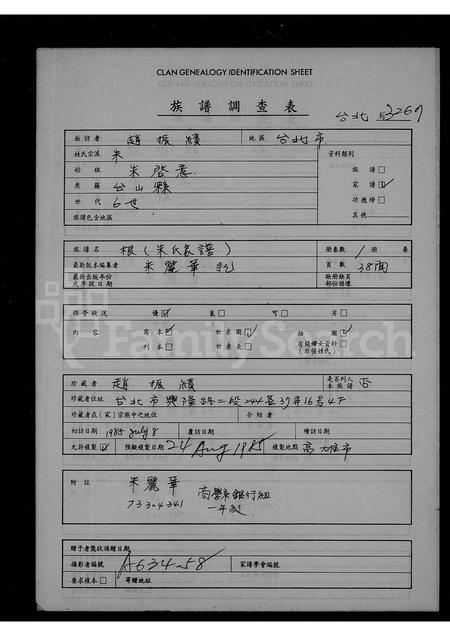 CLAN GENEALOGY IDENTIFICATION SHEET
族譜調查表
台北 53269
面訪者 趙振績 地區 台北市
姓氏宗派 朱 資料類別
始祖 朱啓意 族譜□
原籍 台山縣 家譜☑
世代 6世 功德榜□
族譜包含地區 其他
族譜名 根(朱氏家譜) 冊卷數 1冊 卷
最新版本編纂者 朱麗華 記 頁數 38面
最新出版年份 或序跋日期 缺冊缺頁 部份損壞
保管狀況 優☑ 良□ 可□ 劣□
內容 寫本☑ 世系圖☑ 插圖☑
刊本□ 世系表□ 有關婦女資料□ (非僅姓氏)
FamilySearch
珍藏者 趙振績 是否列入 本族譜 否
珍藏者住址 台北市興隆路二段244巷37弄16号4F
珍藏者在(家)宗族中之地位 介紹者
初訪日期 1985 July 8 覆訪日期 續訪日期
允許複製☑ 預擬複製日期 24 Aug 1985 複製地點 高雄市
附註 朱麗華 商學系銀行組
73304341 一年級
贈予者獎狀頒贈日期
攝影者編號 A634-58 家譜學會編號
要求複本□ 寄贈地址